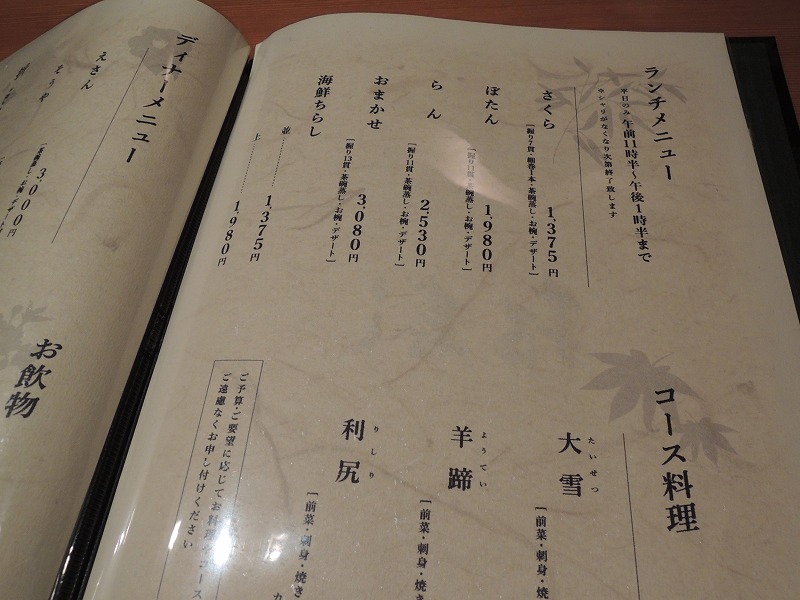 ランチメニュー
平日のみ 午前11時半〜午後1時半まで
※シャリがなくなり次第終了致します
さくら
[握り7貫・細巻1本・茶碗蒸し・お椀・デザート]
1,375円
ぼたん
[握り11貫・茶碗蒸し・お椀・デザート]
1,980円
らん
[握り11貫・茶碗蒸し・お椀・デザート]
2,530円
おまかせ
[握り13貫・茶碗蒸し・お椀・デザート]
3,080円
海鮮ちらし
並………… 1,375円
上………… 1,980円
コース料理
大雪
たいせつ
[前菜・刺身・焼
羊蹄
ようてい
[前菜・刺身・焼き
利尻
りしり
[前菜・刺身・焼き
ご予算・ご要望に応じてお料理やコース
ご遠慮なくお申し付けください
ディナーメニュー
えさん
もうや
3,000円
お飲物